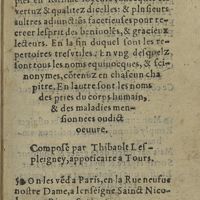 vertuz & qualitez dicelles: & plusieurs
aultres adiunctiõs facecieuses pour re-
creer lesprit des beniuolẽs, & gracieux
lecteurs. En la fin duquel sont les re-
pertoires tresvtiles: En vng desquelz
sont tous les noms equiuocques, & sci-
nonymes, cõtenuz en chascun cha
pitre. En lautre sont les noms
des pties du corps humain,
& des maladies men-
sionnees oudict
oeuure.
Composé par Thibault Les-
pleigney, appoticaire a Tours.
On les vẽd a Paris, en la Rue neufue
nostre Dame, a lenseigne Sainct Nico-